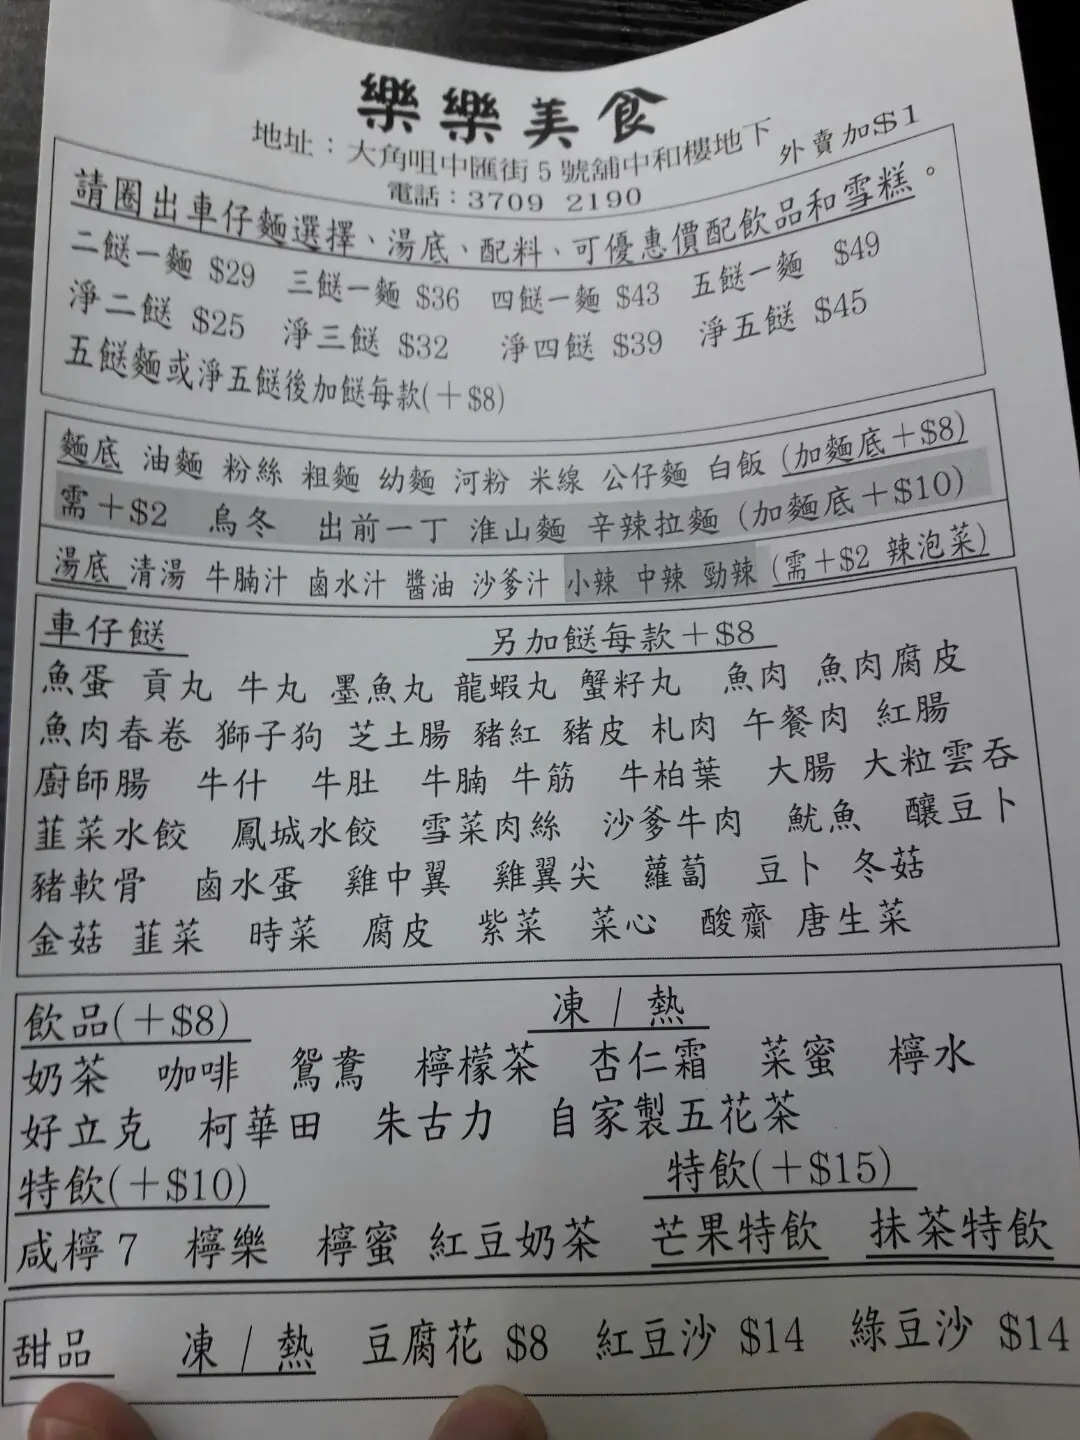 樂樂美食
地址：大角咀中匯街5號舖中和樓地下 外賣加$1
電話：3709 2190
請圈出車仔麵選擇、湯底、配料、可優惠價配飲品和雪糕。
二餸一麵 $29 三餸一麵 $36 四餸一麵 $43 五餸一麵 $49
淨二餸 $25 淨三餸 $32 淨四餸 $39 淨五餸 $45
五餸麵或淨五餸後加餸每款(+$8)
麵底 油麵 粉絲 粗麵 幼麵 河粉 米線 公仔麵 白飯 (加麵底+$8)
需+$2 烏冬 出前一丁 淮山麵 辛辣拉麵 (加麵底+$10)
湯底 清湯 牛腩汁 鹵水汁 醬油 沙爹汁 小辣 中辣 勁辣 (需+$2 辣泡菜)
車仔餸 另加餸每款+$8
魚蛋 貢丸 牛丸 墨魚丸 龍蝦丸 蟹籽丸 魚肉 魚肉腐皮
魚肉春卷 獅子狗 芝士腸 豬紅 豬皮 札肉 午餐肉 紅腸
廚師腸 牛什 牛肚 牛腩 牛筋 牛柏葉 大腸 大粒雲吞
韮菜水餃 鳳城水餃 雪菜肉絲 沙爹牛肉 魷魚 釀豆卜
豬軟骨 鹵水蛋 雞中翼 雞翼尖 蘿蔔 豆卜 冬菇
金菇 韮菜 時菜 腐皮 紫菜 菜心 酸齋 唐生菜
飲品(+$8) 凍 / 熱
奶茶 咖啡 鴛鴦 檸檬茶 杏仁霜 菜蜜 檸水
好立克 柯華田 朱古力 自家製五花茶
特飲(+$10) 特飲(+$15)
咸檸7 檸樂 檸蜜 紅豆奶茶 芒果特飲 抹茶特飲
甜品 凍 / 熱 豆腐花 $8 紅豆沙 $14 綠豆沙 $14